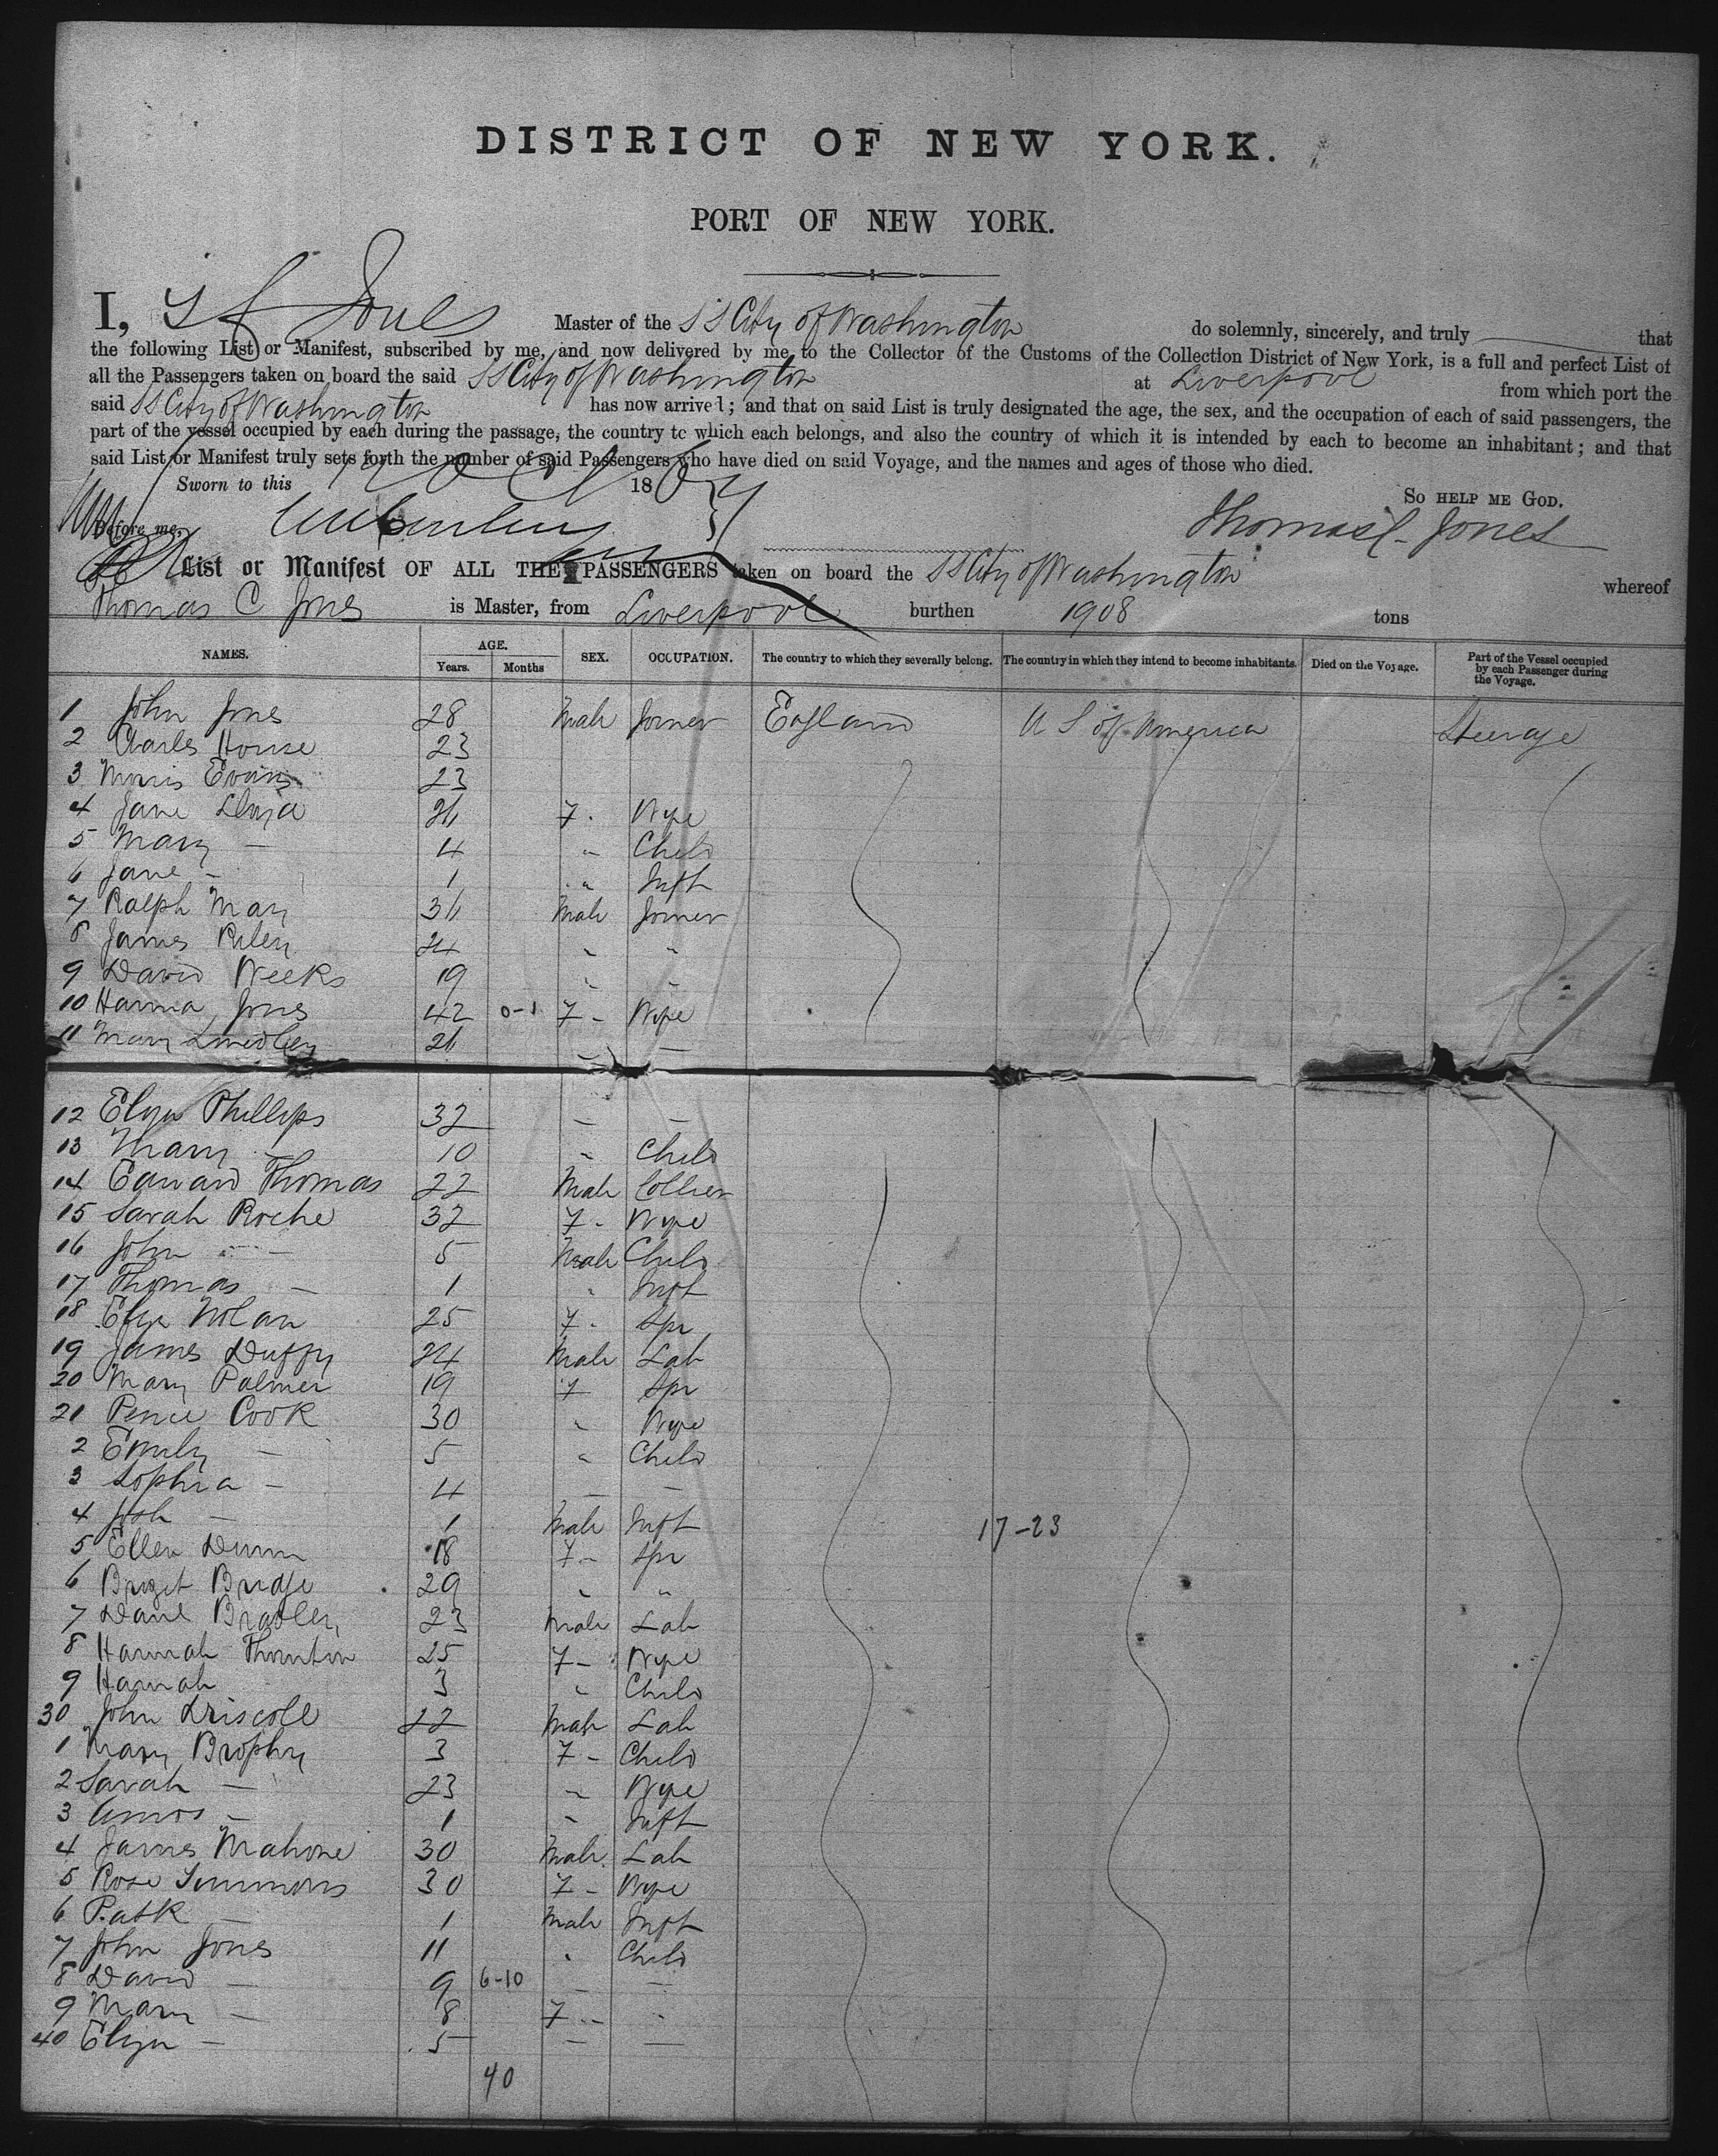 DISTRICT OF NEW YORK.
PORT OF NEW YORK.
I, Jones Master of the SS City of Washington do solemnly, sincerely, and truly that
the following List or Manifest, subscribed by me, and now delivered by me to the Collector of the Customs of the Collection District of New York, is a full and perfect List of
all the Passengers taken on board the said SS City of Washington at Liverpool from which port the
said SS City of Washington has now arrived; and that on said List is truly designated the age, the sex, and the occupation of each of said passengers, the
part of the vessel occupied by each during the passage, the country to which each belongs, and also the country of which it is intended by each to become an inhabitant; and that
said List or Manifest truly sets forth the number of said Passengers who have died on said Voyage, and the names and ages of those who died.
Sworn to this 18
So HELP ME GOD.
Before me,
Thomas C. Jones
List or Manifest OF ALL THE PASSENGERS taken on board the SS City of Washington whereof
Thomas C Jones is Master, from Liverpool burthen 1908 tons
NAMES. AGE. Years. Months SEX. OCCUPATION. The country to which they severally belong. The country in which they intend to become inhabitants. Died on the Voyage. Part of the Vessel occupied by each Passenger during the Voyage.
1 John Jones 28 Male Joiner England U S of America Steerage
2 Charles House 23
3 Morris Evans 23
4 Jane Lloyd 26 F. Wife
5 Mary — 4 " Child
6 Jane — 1 " Inft
7 Ralph May 36 Male Joiner
8 James Riley 24 " "
9 David Weeks 19 " "
10 Hanna Jones 42 0-1 F - Wife
11 Mary 26 — —
12 Eliza Phillips 32 — —
13 Mary — 10 " Child
14 Edward Thomas 22 Male Collier
15 Sarah Roche 32 F - Wife
16 John — 5 Male Child
17 Thomas — 1 " Inft
18 Eliza Nolan 25 F - Spr
19 James Duffy 24 Male Lab
20 Mary Palmer 19 F Spr
21 Cook 30 " Wife
2 Emily — 5 " Child
3 Sophia — 4 — —
4 Josh — 1 Male Inft 17-23
5 Ellen Dunn 18 F - Spr
6 Briget 29 " "
7 Danl Bradley 23 Male Lab
8 Hannah Thornton 25 F - Wife
9 Hannah 3 " Child
30 John Driscoll 22 Male Lab
1 Mary Brophy 3 F - Child
2 Sarah — 23 " Wife
3 Amos — 1 " Inft
4 James Mahone 30 Male Lab
5 Rose Simmons 30 F - Wife
6 Patk — 1 Male Inft
7 John Jones 11 " Child
8 David — 9 6-10 — —
9 Mary — 8 F - "
40 Eliza — 5 — —
40